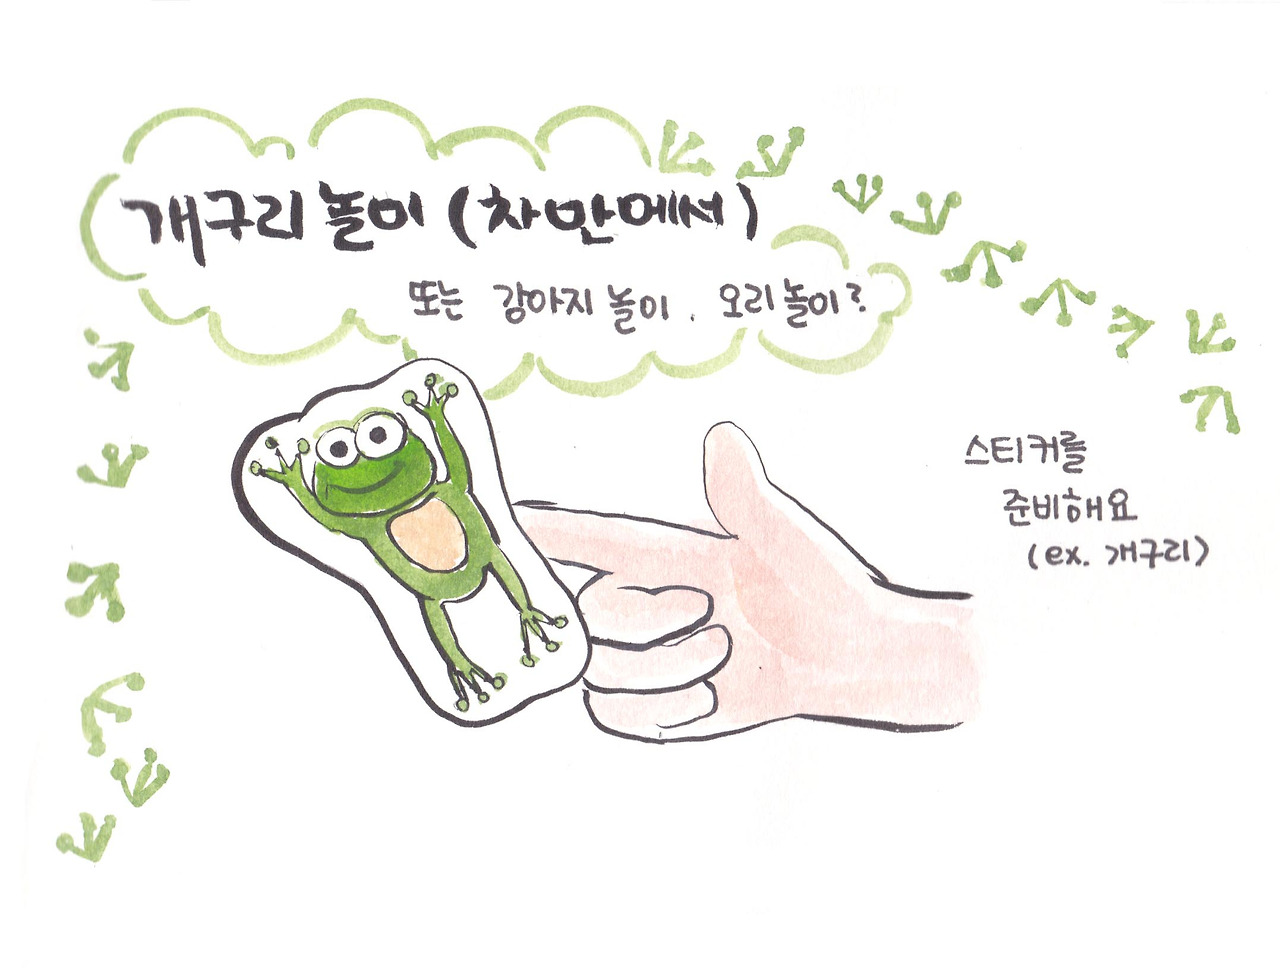 개구리 놀이 (차 안에서)
또는 강아지 놀이. 오리 놀이?
스티커를
준비해요
(ex. 개구리)